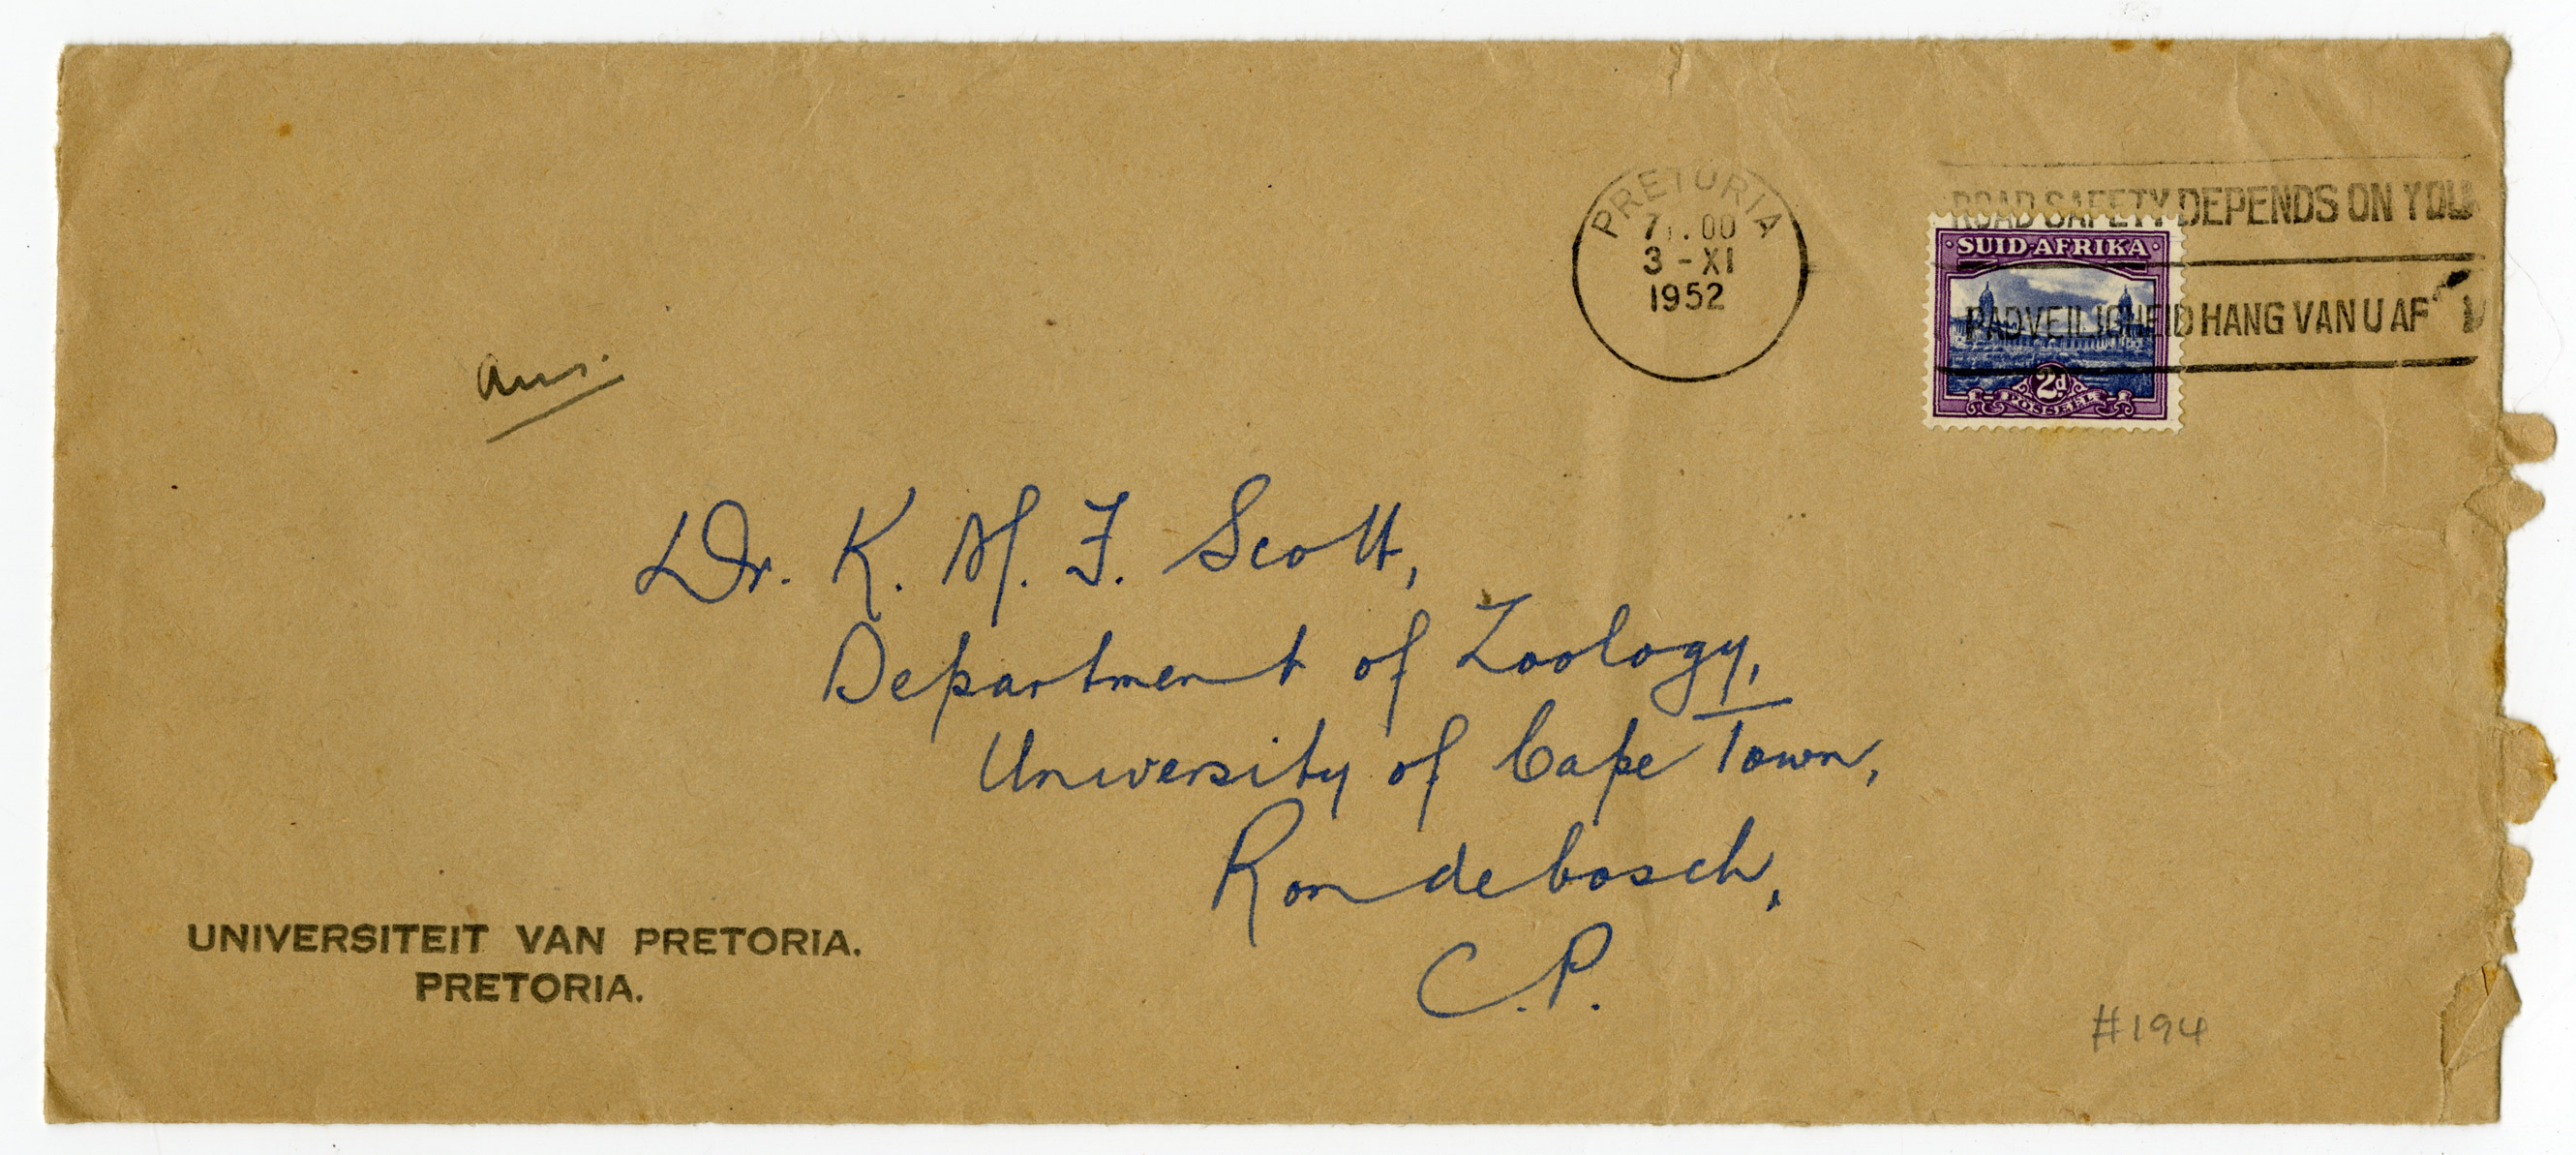 PRETORIA
3 - XI
1952
ROAD SAFETY DEPENDS ON YOU
PADVEILIGHEID HANG VAN U AF
SUID-AFRIKA
2d
POSSEEL
Ans.
Dr. K. M. F. Scott,
Department of Zoology,
University of Cape Town,
Rondebosch,
C.P.
UNIVERSITEIT VAN PRETORIA.
PRETORIA.
#194